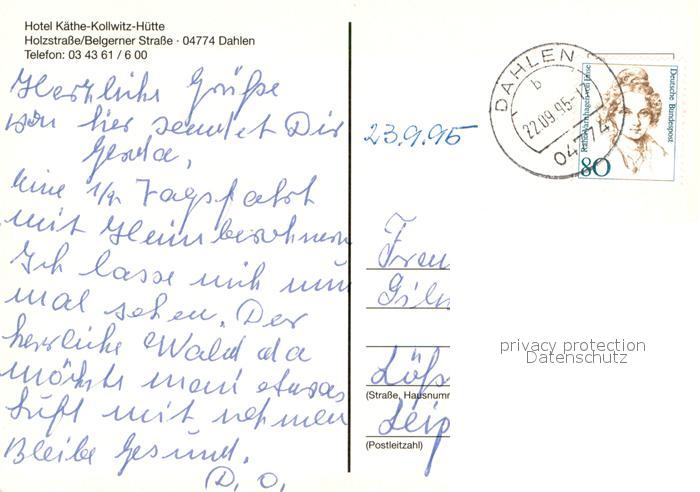 Hotel Käthe-Kollwitz-Hütte
Holzstraße/Belgerner Straße · 04774 Dahlen
Telefon: 03 43 61 / 6 00
Herzliche Grüße
von hier sendet Dir
Gerda,
eine 1/2 Tagsfahrt
mit Heimbewohnern
Ich lasse mich nun
mal sehen. Der
herrliche Wald da
möchte man etwas
Luft mit nehmen
Bleibe Gesund.
D. O.
23.9.95
DAHLEN
b
22.09.95
04774
Deutsche Bundespost
80
Frau
(Straße, Hausnumm
Leip
(Postleitzahl)
privacy protection
Datenschutz